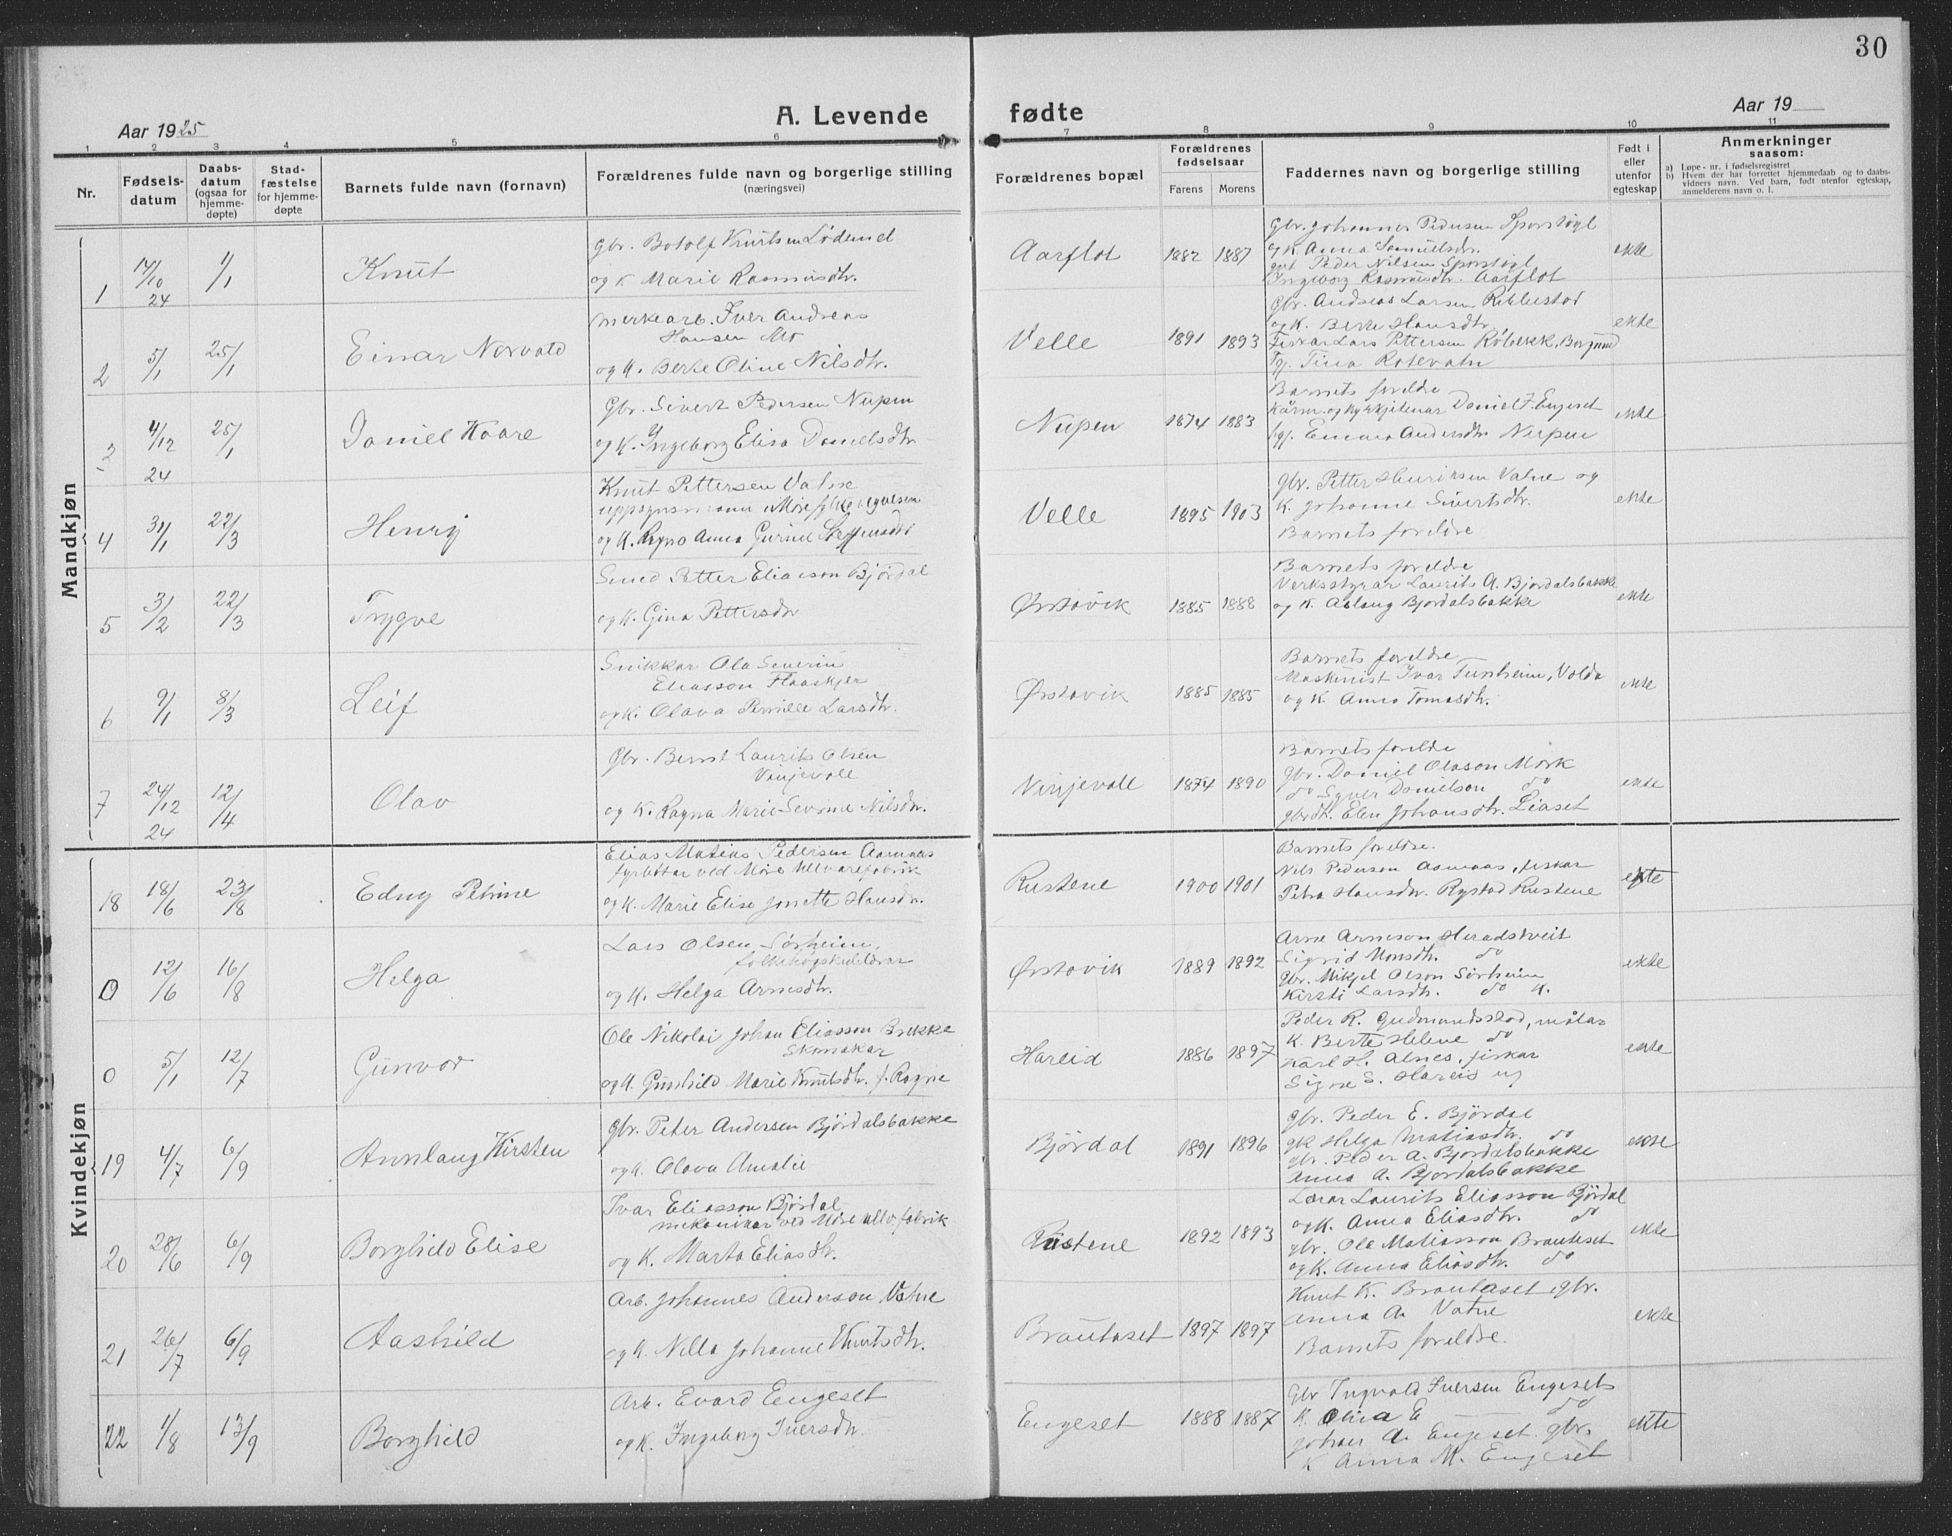 30
Aar 1925
A. Levende
fødte
Aar 19
1 2 3 4 5 6 7 8 9 10 11
Nr.
Fødsels-
datum
Daabs-
datum
(ogsaa for
hjemme-
døpte)
Stad-
fæstelse
for hjemme-
døpte
Barnets fulde navn (fornavn)
Forældrenes fulde navn og borgerlige stilling
(næringsvei)
Forældrenes bopæl
Forældrenes
fødselsaar
Farens
Morens
Faddernes navn og borgerlige stilling
Født i
eller
utenfor
egteskap
Anmerkninger
saasom:
a) Løpe-nr. i fødselsregistret
b) Hvem der har forrettet hjemmedaab og to daabs-
vidners navn. Ved barn, født utenfor egteskap,
anmelderens navn o. l.
Mandkjøn
1 17/10 24 1/1 Knut
Gbr. Botolf Knutsen Lødemel
og K. Marie Rasmusdtr.
Aarflot 1882 1887
Gbr. Johannes Pedersen Sporstøyl
og K. Anna Samuelsdtr.
Peder Nilsen Sporstøyl
Ingeborg Rasmusdtr. Aarflot
ekte
2 5/1 25/1 Einar Norvald
Iver Andreas
Hansen Mo
og K. Berte Oline Nilsdtr.
Velle 1891 1893
Gbr. Andreas Larsen Ribbestad
og K. Berte Hansdtr.
Lars Pettersen Røbekk, Borgund
Tina Rotevatn
ekte
3 4/12 24 25/1 Daniel Kaare
Gbr. Sivert Pedersen Nupen
og K. Ingeborg Elisa Danielsdtr.
Nupen 1874 1883
Barnets foreldre
Daniel J. Engeset
Emma Andersdtr. Nupen
ekte
4 31/1 22/3 Henry
Knut Pettersen Vatne
og K. Ragna Anna Gurine Steffensdtr.
Velle 1895 1903
gbr. Petter Henriksen Vatne og
K. Johanne Sivertsdtr.
Barnets foreldre
ekte
5 3/2 22/3 Trygve
Smed Petter Eliasson Bjørdal
og K. Gina Pettersdtr
Ørstavik 1885 1888
Barnets foreldre
Verksstyrar Laurits A. Bjørdalsbakke
og K. Aslaug Bjørdalsbakke
ekte
6 9/1 8/3 Leif
Snikkar Ola Severin
Eliasson Flaaskjer
og K. Olava Pernille Larsdtr.
Ørstavik 1885 1885
Barnets foreldre
Maskinist Ivar Tunheim, Volda
og K. Anna Tomasdtr.
ekte
7 24/12 24 12/4 Olav
Gbr. Bernt Laurits Olsen
Vinjevoll
og K. Ragna Marie Severine Nilsdtr.
Vinjevoll 1874 1890
Barnets foreldre
gbr. Daniel Olason Mork
do Syver Danielson do
gbrdtr. Elen Johansdtr. Liaset
ekte
Kvindekjøn
18 18/6 23/8 Edny Petrine
Elias Matias Pedersen Aamnes
fyrbøtar ved Møre Ullvarefabrik
og K. Marie Elise Jonette Hansdtr.
Rustene 1900 1901
Barnets foreldre.
Nils Pederson Aamnas, fiskar
Petra Hansdtr. Rystad Rustene
ekte
0 12/6 16/8 Helga
Lars Olsen Sørheim,
folkehøgskulelærar
og K. Helga Arnesdtr.
Ørstavik 1889 1892
Arne Arneson Heradstveit
Sigrid Monsdtr. do
Gbr. Mikjel Olson Sørheim
Kirsti Larsdtr. do K.
ekte
0 5/1 12/7 Gunvor
Ole Nikolai Johan Eliasson Brekke
Skomakar
og K. Gunhild Marie Knutsdtr. f. Ragne
Hareid 1886 1897
Peder R. Gudmundsstad, målar
K. Berte Helene do
Karl H. Alnes, fiskar
Signe S. Hareid ug
ekte
19 4/7 6/9 Annlaug Kirsten
Gbr. Peter Andersen Bjørdalsbakke
og K. Olava Amalie
Bjørdal 1891 1896
gbr. Peder E. Bjørdal
gk Helga Matiasdtr. do
gbr. Peder A. Bjørdalsbakke
Anna A. Bjørdalsbakke
ekte
20 28/6 6/9 Borghild Elise
Ivar Eliasson Bjørdal
mekanikar ved Møre ullv.fabrik
og K. Marta Eliasdtr.
Rustene 1892 1893
Lærar Laurits Eliasson Bjørdal
og K. Anna Eliasdtr. do
gbr. Ole Matiasson Brautaset
og K. Anna Eliasdtr. do
ekte
21 26/7 6/9 Aashild
Arb. Johannes Anderson Vatne
og K. Nilla Johanne Knutsdtr.
Brautaset 1897 1897
Knut K. Brautaset, gbr.
Anna A. Vatne
Barnets foreldre.
ekte
22 1/8 13/9 Borghild
Arb. Evard Engeset
og K. Ingeborg Iversdtr.
Engeset 1888 1887
Gbr Ingvald Iversen Engeset
K. Olina E do
Johan A. Engeset gbr.
K Anna M. Engeset
ekte